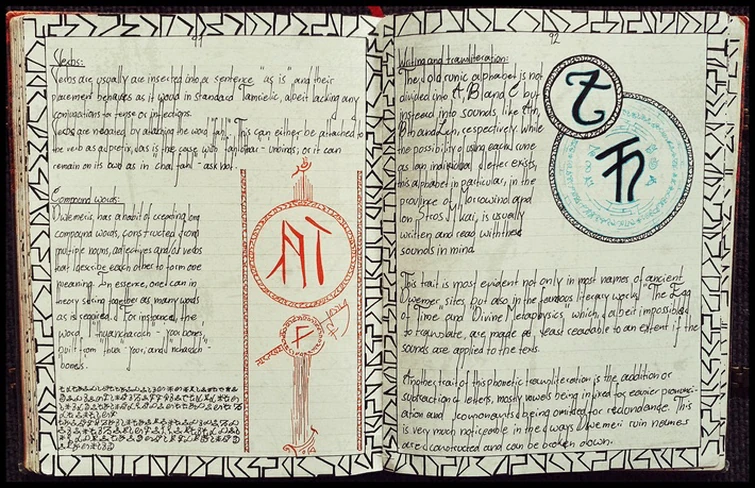 91
Verbs:
Verbs are usually are inserted into a sentence "as is" and their
placement behaves as it would in standard Tamrielic, albeit lacking any
conjugations to tense or inflections.
Verbs are negated by attaching the word This can either be attached to
the verb as a prefix, as is the case with unbinds; or it can
remain on its own as in ask not.
Compound words:
Dwemeris has a habit of creating long
compound words, constructed from
multiple nouns, adjectives and/or verbs
that describe each other to form one
meaning. In essence, one can in
theory string together as many words
as is required. For instance, the
word "your bones",
built from your, and
bones.
92
Writing and transliteration:
The old runic alphabet is not
divided into A, B and C but
instead into sounds, like Ath,
Bth and respectively. While
the possibility of using each rune
as an individual letter exists,
this alphabet in particular, in the
province of Morrowind and
on Stros M'kai, is usually
written and read with these
sounds in mind.
This trait is most evident not only in most names of ancient
Dwemer sites, but also in the famous literary work "The Egg
of Time" and "Divine Metaphysics", which, albeit impossible
to translate, are made at least readable to an extent if the
sounds are applied to the texts.
Another trait of this phonetic transliteration is the addition or
subtraction of letters, mostly vowels being inferred for easier pronunci-
ation and consonants being omitted for redundance. This
is very much noticeable in the ways Dwemeri ruin names
are constructed and can be broken down.